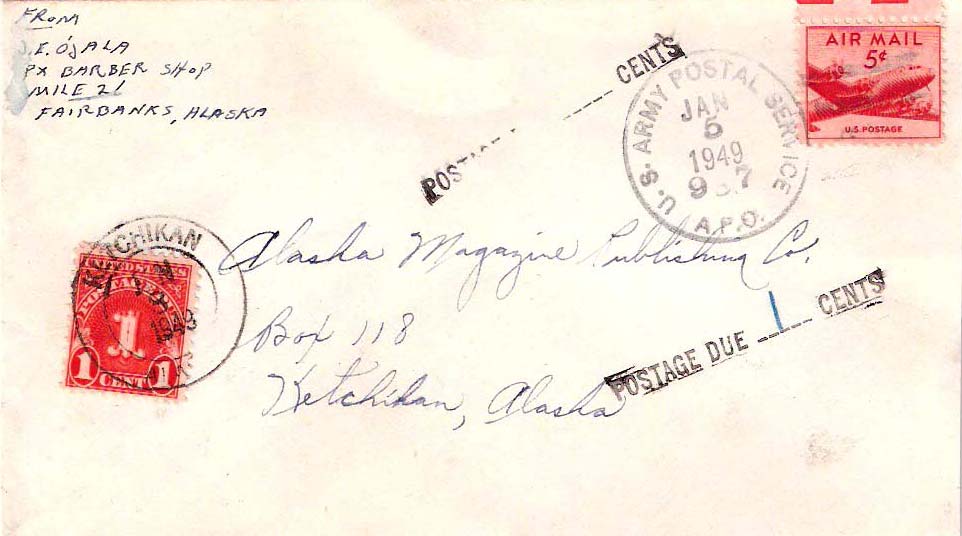 FROM
J.E. OJALA
PX BARBER SHOP
MILE 21
FAIRBANKS, ALASKA
CENTS
AIR MAIL
5¢
U.S. POSTAGE
U.S. ARMY POSTAL SERVICE
JAN
5
1949
A.P.O.
KETCHIKAN
1
1 CENT 1
Alaska Magazine Publishing Co.
Box 118
Ketchikan, Alaska
POSTAGE DUE 1 CENTS